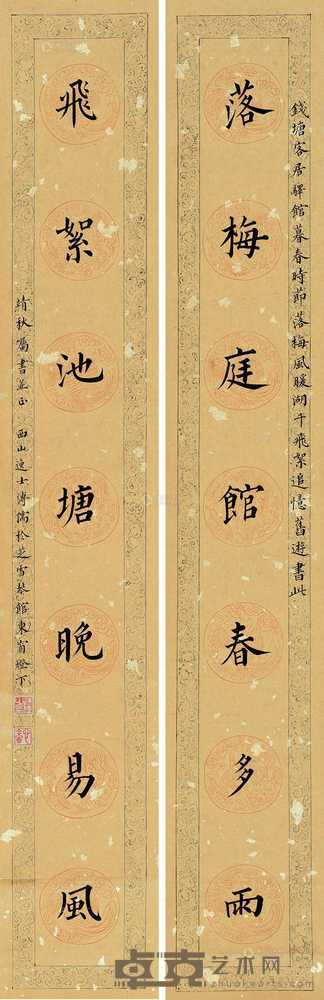 錢塘客居驛館暮春時節落梅風暖湖干飛絮追憶舊遊書此
落梅庭館春多雨
飛絮池塘晚易風
靖秋屬書並正 西山逸士溥儒於芝雪琴館東窗燈下
卓克艺术网